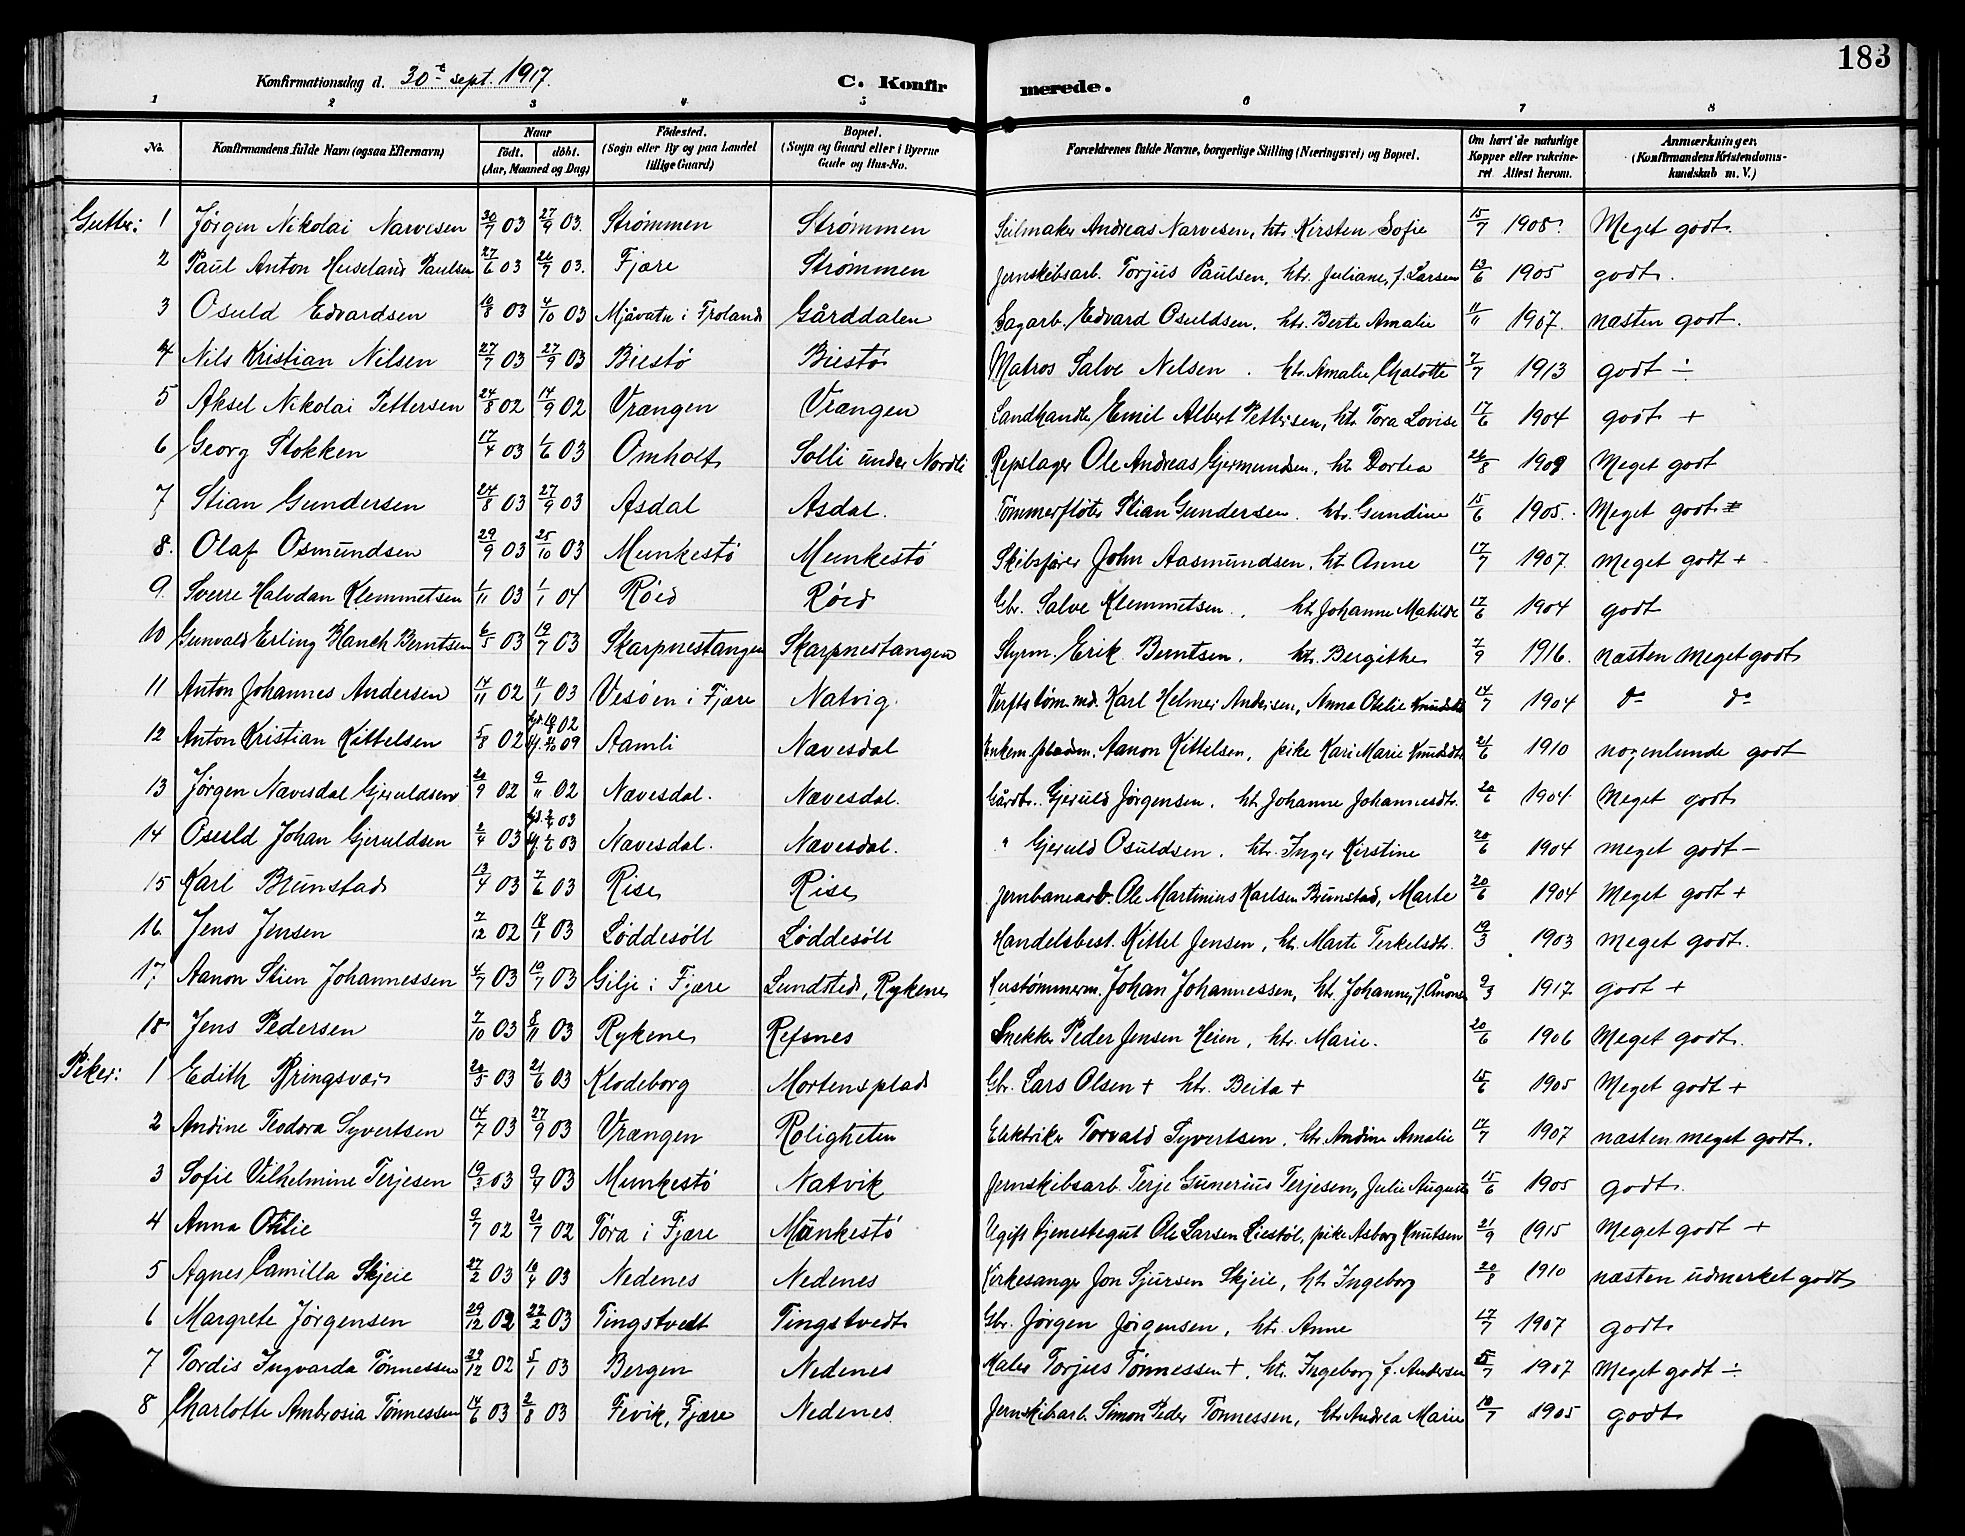 183
Konfirmationsdag d. 30te sept. 1917.
C. Konfirmerede.
1 2 3 4 5 6 7 8
No. Konfirmandens fulde Navn (ogsaa Efternavn) Naar født. døbt. (Aar, Maaned og Dag) Fødested. (Sogn eller By og paa Landet tillige Gaard) Bopæl. (Sogn og Gaard eller i Byerne Gade og Hus-No. Forældrenes fulde Navne, borgerlige Stilling (Næringsvei) og Bopæl. Om havt de naturlige Kopper eller vakcineret. Attest herom. Anmærkninger. (Konfirmandens Kristendomskundskab m. V.)
Gutter: 1 Jørgen Nikolai Narvesen 30/7 03 27/9 03. Strømmen Strømmen Seilmaker Andreas Narvesen, htr. Kirsten Sofie 15/7 1908. Meget godt.
2 Paul Anton Huseland Paulsen 27/6 03 26/7 03. Fjære Strømmen Jernskibsarb. Torjus Paulsen, htr. Juliane, f. Larsen 13/6 1905 godt.
3 Osuld Edvardsen 10/8 03 4/10 03 Mjåvatn i Froland Gårddalen Sagarb. Edvard Osuldsen. htr. Berte Amalie 11/11 1907. næsten godt.
4 Nils Kristian Nilsen 27/7 03 27/9 03 Biestø Biestø Matros Salve Nelsen. htr. Amalie Chalotte 2/7 1913 godt ÷
5 Aksel Nikolai Pettersen 24/8 02 14/9 02 Vrængen Vrængen Landhandler Emil Albert Pettersen, htr. Tora Lovise 17/6 1904 godt +
6 Georg Stokken 17/4 03 1/6 03 Omholt Solli under Nordli Repslager Ole Andreas Gjermundsen, ht Dortea 26/8 1909 Meget godt
7 Stian Gundersen 24/8 03 27/9 03 Asdal Asdal. Tømmerfløter Stian Gundersen. htr. Gundine 15/6 1905. Meget godt
8. Olaf Osmundsen 29/9 03 25/10 03 Munkestø Munkestø Skibsfører John Aasmundsen, ht Anne 17/7 1907 meget godt +
9. Sverre Halvdan Klemmetsen 1/11 03 1/1 04 Røed Røed Gbr. Salve Klemmetsen. ht Johanne Matilde 17/6 1904 godt
10 Gunvald Erling Blanch Berntsen 6/5 03 19/7 03 Skarpnestangen Skarpnestangen Styrm. Erik Berntsen. htr. Bergithe 7/9 1916. næsten meget godt
11 Anton Johannes Andersen 14/11 02 11/1 03 Vesøen i Fjære Natvig. Verftstøm.md. Karl Helmer Andersen, Anna Otelie 14/7 1904 do do
12 Anton Kristian Kittelsen 5/8 02 02 09 Aamli Nævesdal Aanon Kittelsen, pike Kari Marie Knudsdtr 21/6 1910 nogenlunde godt
13 Jørgen Nævesdal Gjeruldsen 20/9 02 9/11 02 Nævesdal. Nævesdal. Gårdbr. Gjeruld Jørgensen. ht Johanne Johannesdtr. 20/6 1904. Meget godt
14 Osuld Johan Gjeruldsen 2/4 03 03 03 Nævesdal. Nævesdal. " Gjeruld Osuldsen. htr. Inger Kirstine 20/6 1904 meget godt –
15 Karl Brunstad 13/4 03 7/6 03 Rise Rise Jernbanearb. Ole Martinius Karlsen Brunstad, Marte 20/6 1904 Meget godt +
16 Jens Jensen 7/12 02 18/1 03 Løddesøll Løddesøll Handelsbest. Kittel Jensen, ht. Marte Terkelsdtr. 19/3 1903 meget godt.
17, Aanon Stien Johannessen 4/7 03 19/7 03 Gilje i Fjære Lundsted, Rykene Hustømmerm. Johan Johannessen, htr. Johanne, f. Ånonsen 9/3 1917 godt +
18 Jens Pedersen 7/10 03 8/11 03 Rykene Refsnes Snekker Peder Jensen Heien, htr. Marie. 20/6 1906 Meget godt.
Piker: 1 Edith Bringsvær 20/5 03 21/6 03 Klodeborg Mortensplads Gbr. Lars Olsen + htr. Beita + 15/6 1905 Meget godt +
2 Andine Teodora Syvertsen 14/7 03 27/9 03 Vrængen Roligheten Elektriker Torvald Syvertsen, htr. Andine Amalie 17/7 1907 næsten meget godt.
3 Sofie Vilhelmine Terjesen 19/3 03 9/7 03 Munkestø Natvik Jernskibsarb. Terje Gunerius Terjesen, Julie Auguste 15/6 1905 godt.
4 Anna Otilie 9/7 02 20/7 02 Töra i Fjære Munkestø Ugift tjenestegut Ole Larsen Liestøl, pike Asborg Knutsen 21/9 1915 Meget godt +
5 Agnes Camilla Skjeie 27/2 03 10/4 03 Nedenes Nedenes Kirkesanger Jon Sjursen Skjeie, ht. Ingeborg 20/8 1910 næsten udmerket godt
6 Margrete Jørgensen 29/12 02 22/2 03 Tingstvedt Tingstvedt Gbr. Jørgen Jørgensen, htr. Anne 17/7 1907 godt
7 Tordis Ingvarda Tønnessen 29/12 02 5/1 03 Bergen Nedenes Maler Torjus Tønnessen +, ht. Ingeborg f. Andersen 5/7 1907 Meget godt ÷
8 Charlotte Ambrosia Tønnessen 14/6 03 2/8 03 Fevik, Fjære Nedenes Jernskibsarb. Simon Peder Tønnessen, htr Andrea Marie 10/7 1905 godt